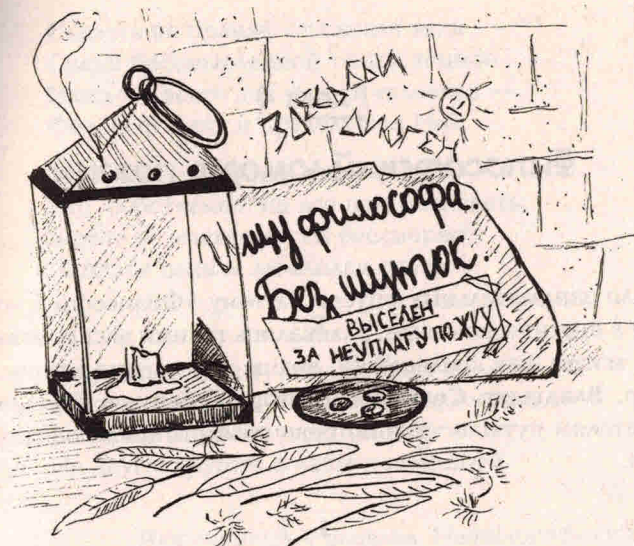 ЗДЕСЬ БЫЛ
ДИОГЕН
Ищу философа.
Без шуток.
ВЫСЕЛЕН
ЗА НЕУПЛАТУ ПО ЖКХ